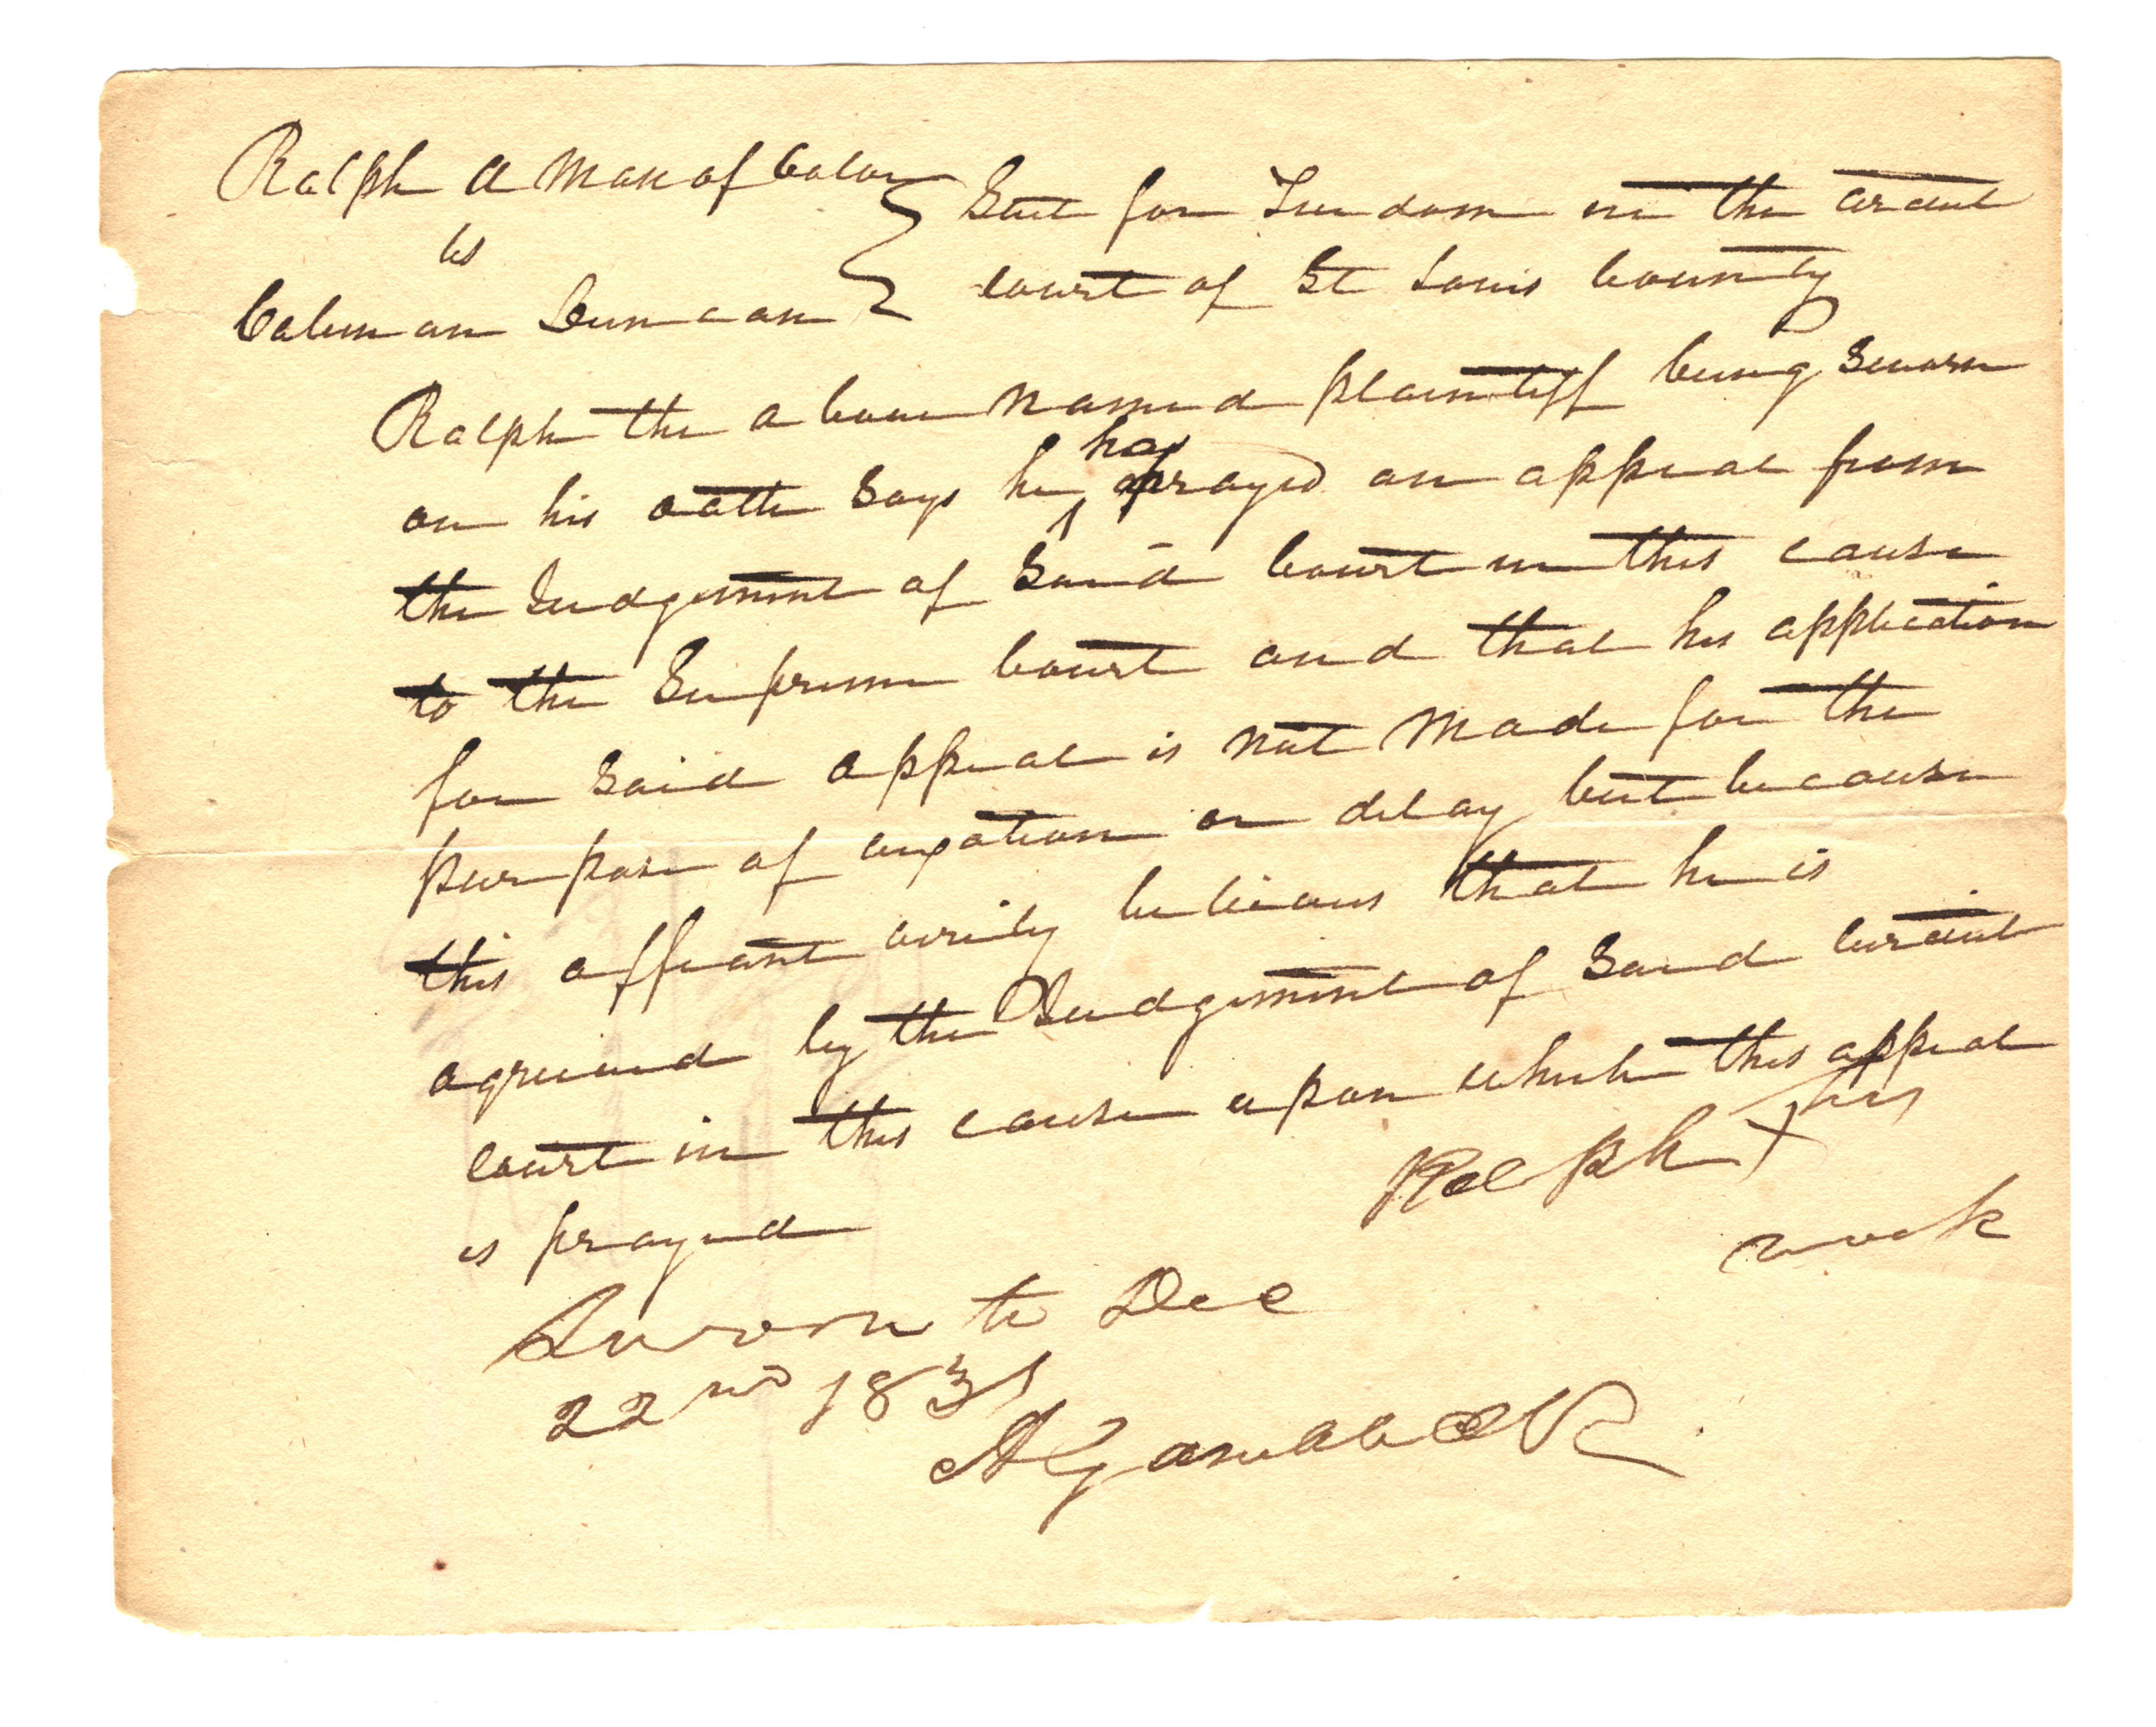 Ralph a man of Color
vs
Coleman Duncan
Suit for Freedom in the circuit
court of St Louis County
Ralph the above named plaintiff being Sworn
on his oath Says he has prayed an appeal from
the Judgement of Said Court in this cause
to the Supreme Court and that his application
for Said appeal is not made for the
purpose of vexation or delay but because
this affiant verily believes that he is
agrieved by the Judgement of Said circuit
court in this cause upon which this appeal
is prayed
his
Ralph X
mark
Sworn to Dec
22nd 1831
A Gamble Ck